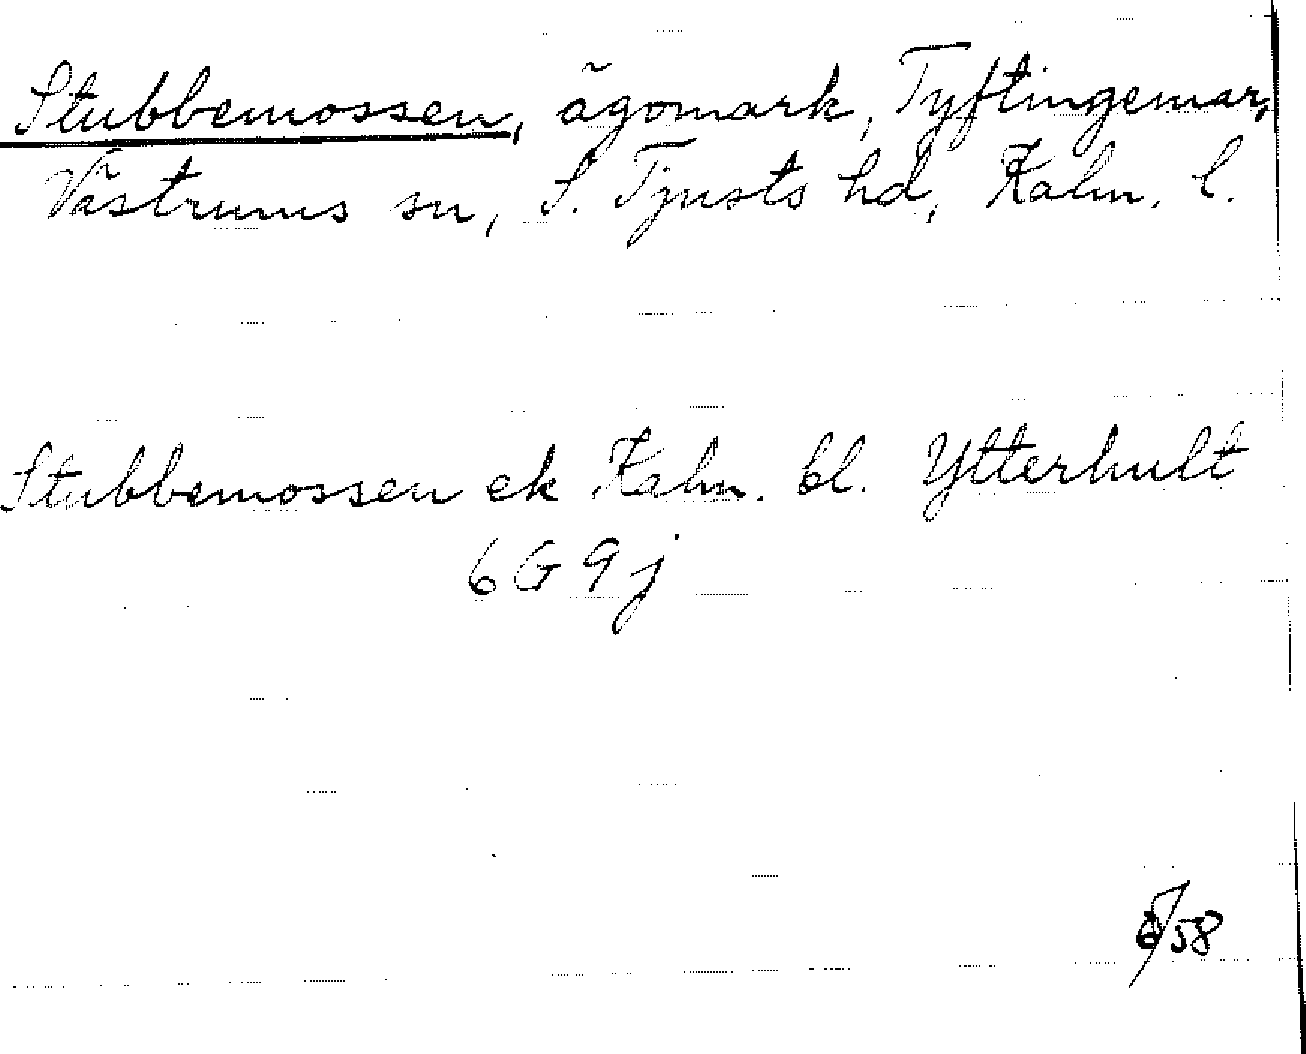 Stubbemossen, ägomark, Tyftingemar,
Västrums sn, S. Tjusts hd, Kalm. l.
Stubbemossen ek Kalm. bl. Ytterhult
6G 9j
/58